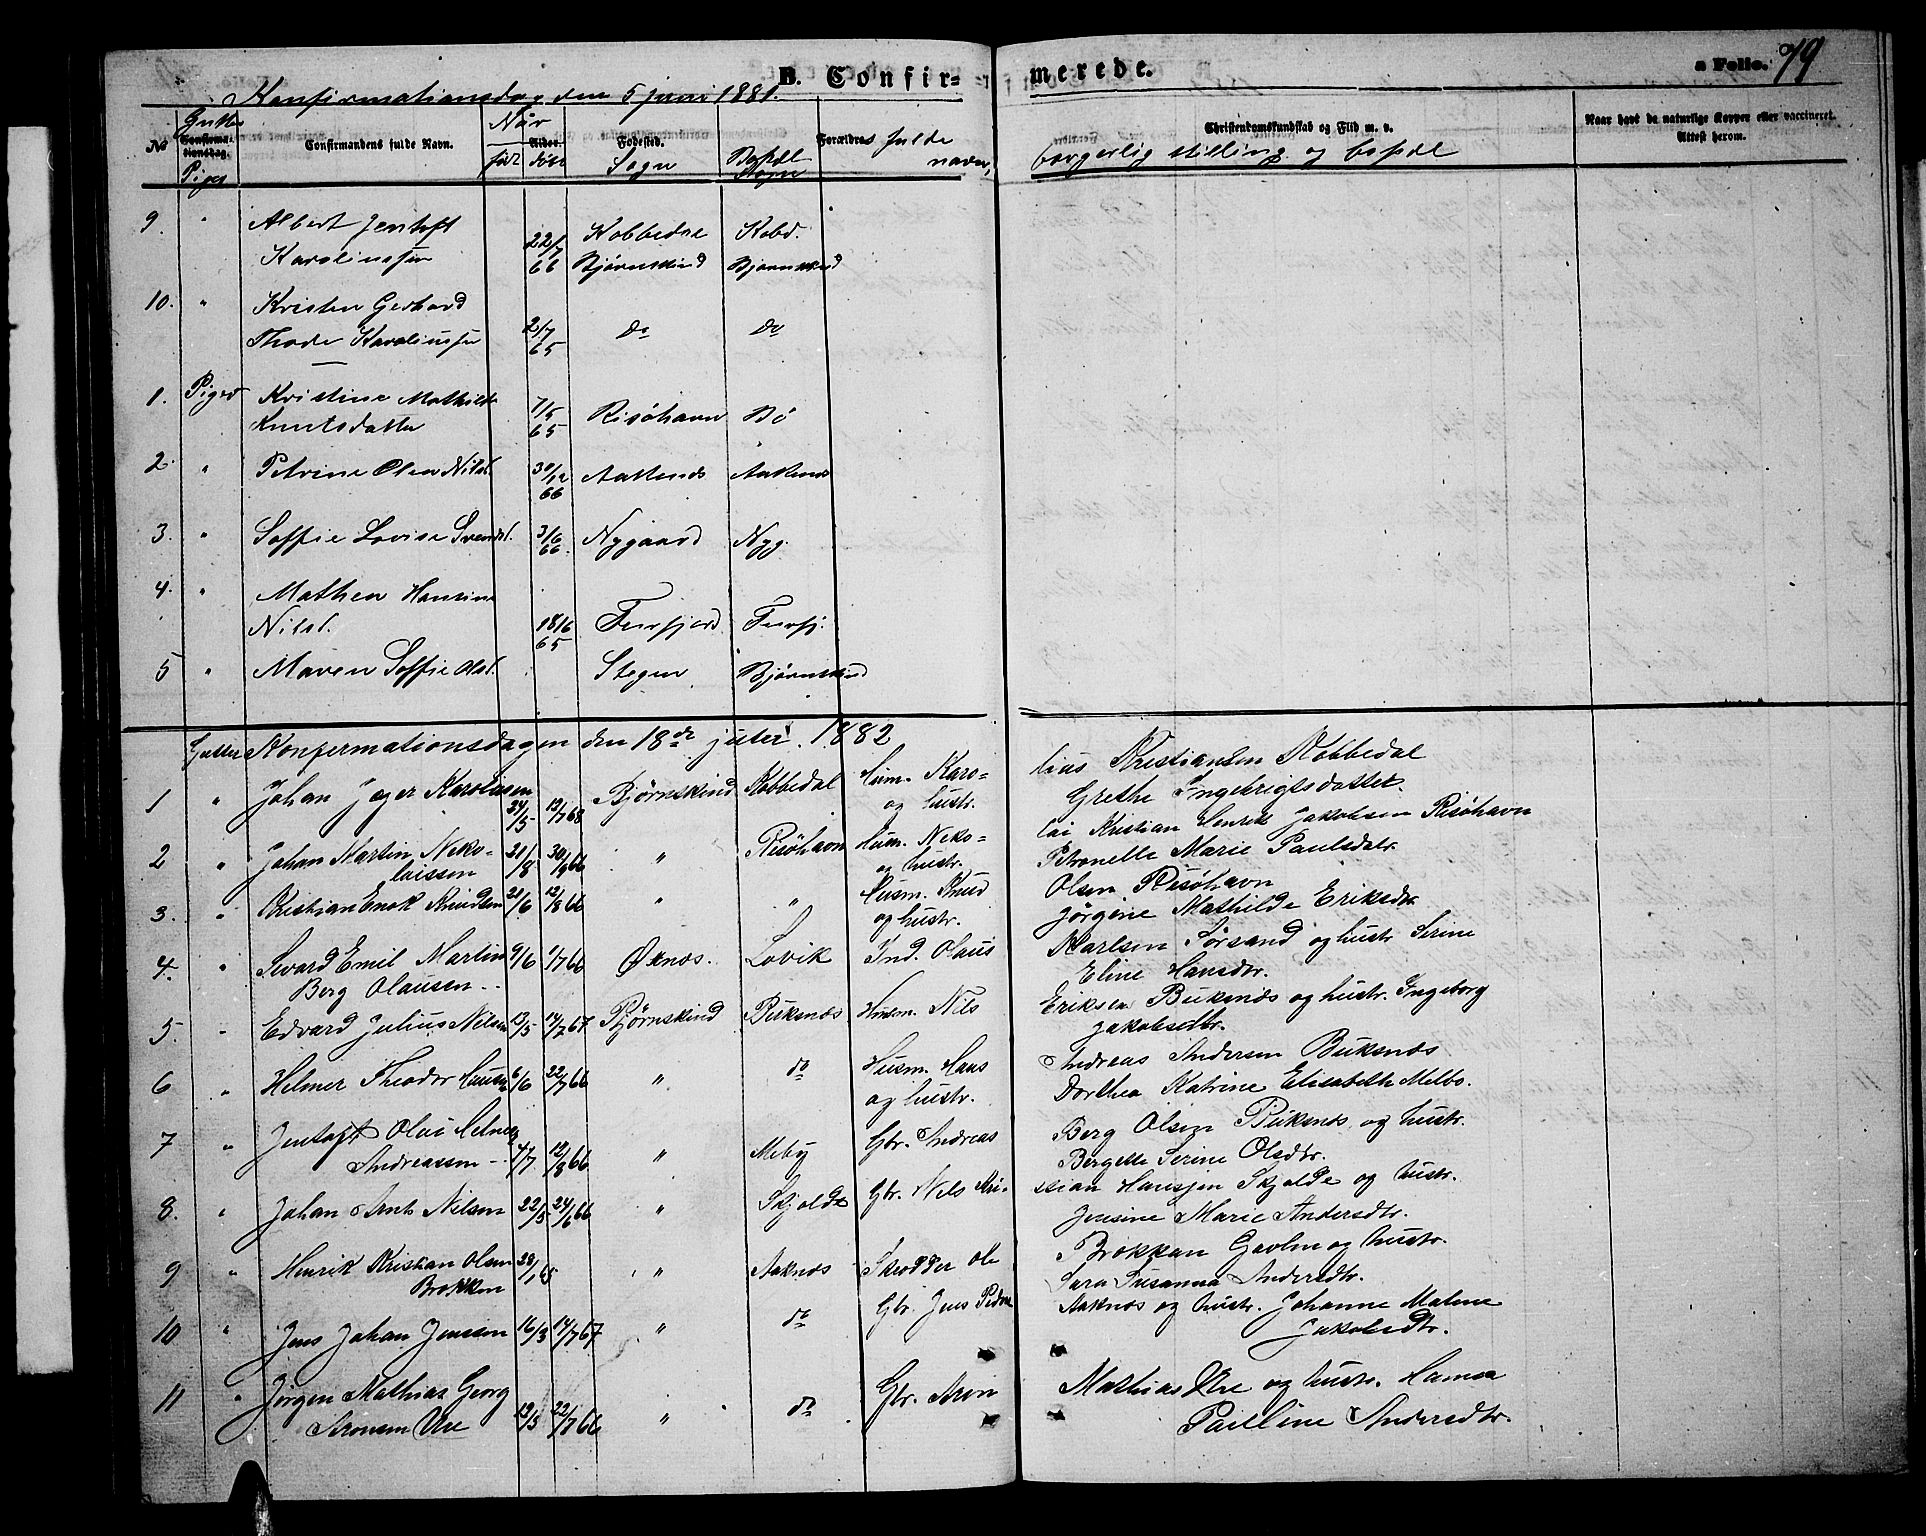 B. Confir- merede.
a Folio. 79
Konfirmationsdag den 5 juni 1881.
No
Gutter
Confirma-
tionsdag.
Piger
Confirmandens fulde Navn.
Når
født
Alder.
døbt
Fodested.
Sogn
Bopæl
Sogn
Forældres fulde
navn,
Christendomskundskab og Flid m. v.
borgerlig stilling og bopæl
Naar havt de naturlige Kopper eller vaccineret.
Attest herom.
9. " Albert Jentoft
Karoliussen 22/7 66 Kobbedal Kobd.
Bjørnskind Bjørnskind
10. " Kristen Gerhard
Thode Karoliussen 2/7 65 do do
1. Piger Kristine Mathilde
Knutsdatter 7/5 65 Risøhavn Bø
2. " Petrine Olea Nilsd. 30/12 66 Aaknes Aaknes
3. " Soffie Lovise Svendsd. 3/6 66. Nygaard Nyg.
4. " Mathea Hansine
Nilsd. 18/6 65 Forfjord Forfj.
5 " Maren Soffie Olsd. Stegen Bjørnskind
Gutter Konfermationsdagen den 18de juli 1882
1 " Johan Jæger Karolusen 24/5 13/7 68 Bjørnskind Kobbedal Husm. Karo- lius Kristiansen Kobbedal
og hustr. Grethe Ingebrigtsdatter.
2 " Johan Martin Neko- 21/8 30/9 66 " Risøhavn Husm. Neko- lai Kristian Henrik Jakobsen Risøhavn
laissen og hustr. Petronelle Marie Paulsdatr.
3. " Kristian Enok Knudsen 21/6 12/8 66 " " Husm. Knud Olsen Risøhavn
og hustr. Jørgine Mathilde Eriksdr
4. " Sivard Emil Martin 9/6 1/7 66 Øxnæs. Lovik Ind. Olaus Karlsen Sørsand og hustr Serine
Berg Olausen Eline Hansdtr.
5. " Edvard Julius Nilsen 13/5 14/7 67 Bjørnskind Buksnæs Husm. Nils Eriksen Buksnæs og hustr. Ingeborg
Jakobsdtr.
6 " Helmer Theodor Hansen 6/6 22/7 66 " do Husm. Hans Andreas Andersen Buksnæs
og hustr. Dorthea Katrine Elisabeth Melbo.
7 " Jentoft Olai Helmer
Andreassen 7/7 12/8 66 " Meby Gbr. Andreas Berg Olsen Buksnæs og hustr.
Bergette Serine Olsdtr.
8. " Johan Arnt Nilsen 22/5 24/6 66 " Skjolde Gbr. Nils Kri- stian Hansjen Skjolde og hustr.
Jensine Marie Andersdtr.
9 " Henrik Kristian Olsen
Brokken 28/1 65 " Aaknæs Skrædder Ole Brokkan Gavlen og hustr.
Sara Susanna Andersdtr.
10 " Jens Johan Jenssen 16/3 14/7 67 " do Gbr. Jens Peder Aaknæs og hustr. Johanne Malene
Jakobsdtr.
11 " Jørgen Mathias Georg
Aronsen Ure 12/5 22/7 66 " do Gbr. Aron Mathias Ure og hustr. Hanna
Pauline Andersdtr.